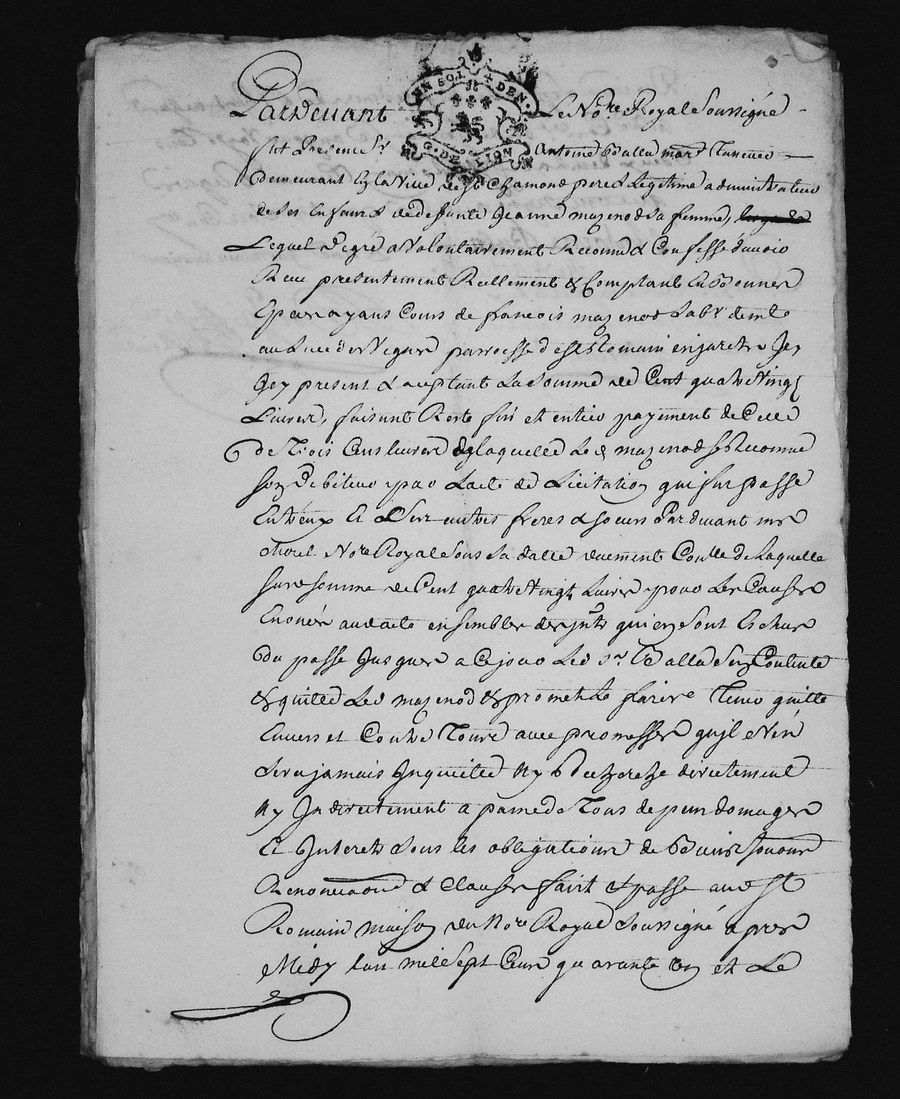 UN SOL 4 DEN.
G. DE LION
Pardevant Le No.re Royal Soussigné
fut Present Sr Antoine Balla mar.t
Demeurant En la Ville de St Chamond pere & Legitime administrateur
de ses Enfants & de defunte Jeanne mazenod sa femme,
Lequel De gré a Volontairement Reconnu & Confessé d'avoir
Receu presentement Reellement & Comptant En Bonnes
Especes ayant Cours de francois mazenod Lab.r dem.t
au Lieu de parroisse de St Romain en jarest
Icy present & acceptant La Somme de Cent quatre Vingt
Livres, faisant Reste fin et entier payement de Celle
De Trois Cens Livres de laquelle Le d mazenod se Reconnu
son Debiteur par L'acte de Licitation qui fut passé
Entreux Et Leurs autres freres & soeurs Pardevant me
No.re Royal sous sa datte duement Con.llé de Laquelle
susd somme de Cent quatre Vingt Livres pour Les Causes
Enoncés audacte ensembles des jnts qui en sont Eschus
Du passé Jusques a Ce jour Led sr Balla Sen Contente
& quitte Led mazenod & promet Le faire Tenir quitte
Envers et Contre Tous avec promesse quil nen
Sera jamais Inquietté ny Recherché directement
ny Indirectement a paine de Tous depens domages
Et Interets Sous les obligations de Biens
Renonciations & Clauses fait & passé aud St
Romain maison du No.re Royal Soussigné apres
Midy Lan mil Sept Cens quarante Un et Le